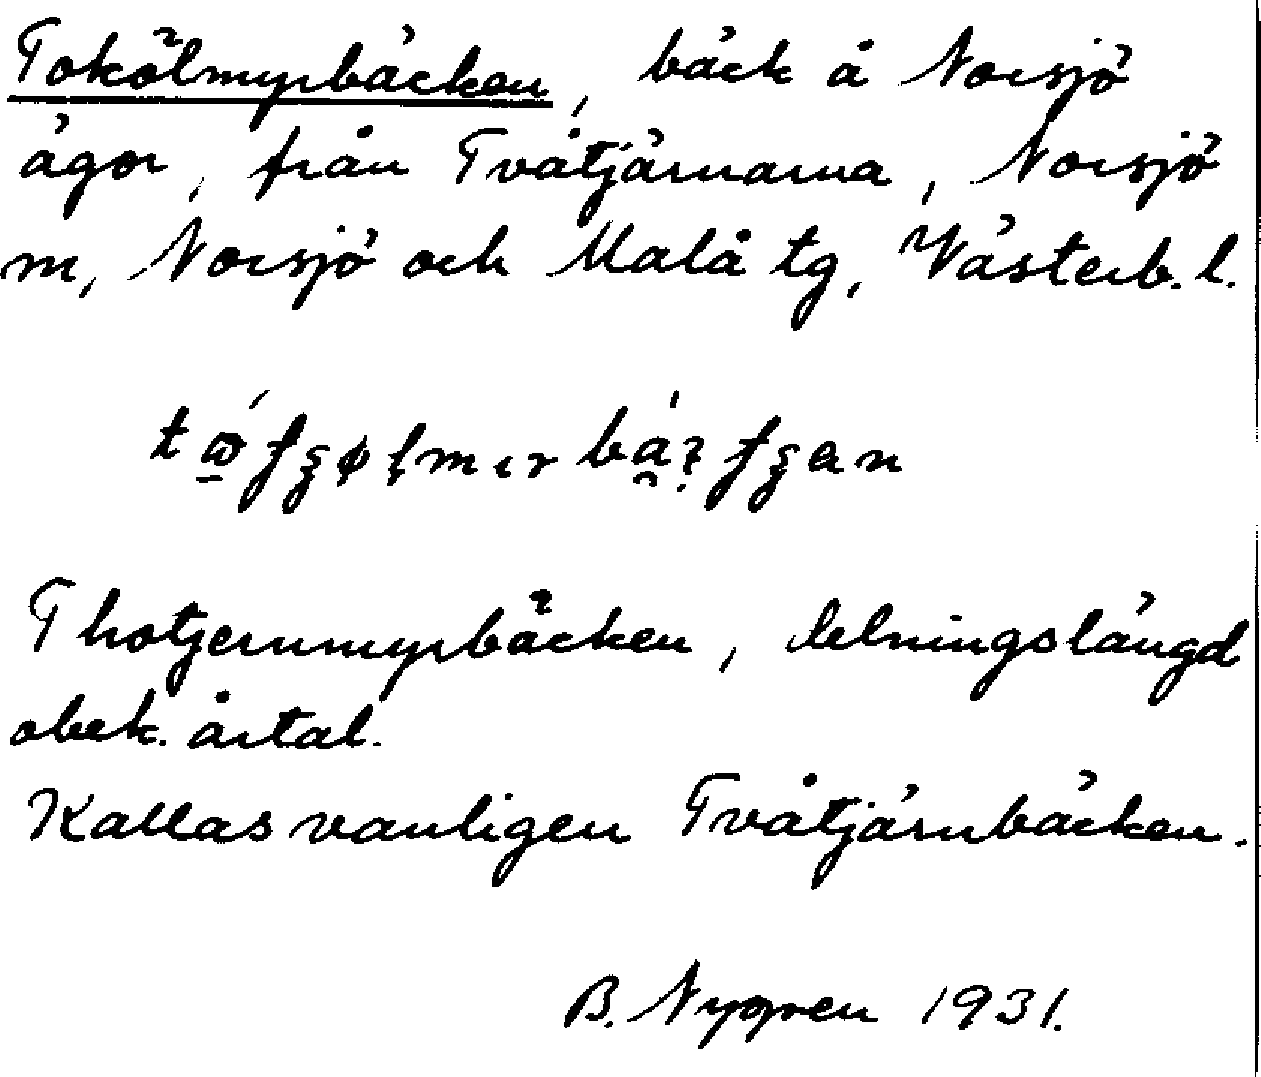 Tokölmyrbäcken, bäck å Norsjö
ägor, från Tvåtjärnarna, Norsjö
m, Norsjö och Malå tg, Västerb. l.
Thotjernmyrbäcken, delningslängd
obek. årtal.
Kallas vanligen Tvåtjärnbäcken.
B. Nygren 1931.